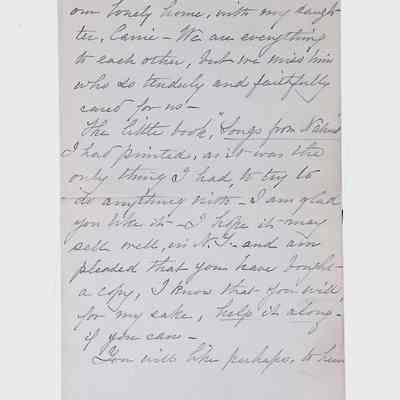 our lonely home, with my daugh-
ter, Carrie - We are everything
to each other, but we miss him
who so tenderly and faithfully
cared for us -
The little book, "Songs from
I had printed, as it was the
only thing I had, to try to
do anything with - I am glad
you like it - I hope it may
sell well, in N.Y. and am
pleased that you have bought
a copy, I know that you will,
for my sake, help it along -
if you can -
You will like perhaps, to